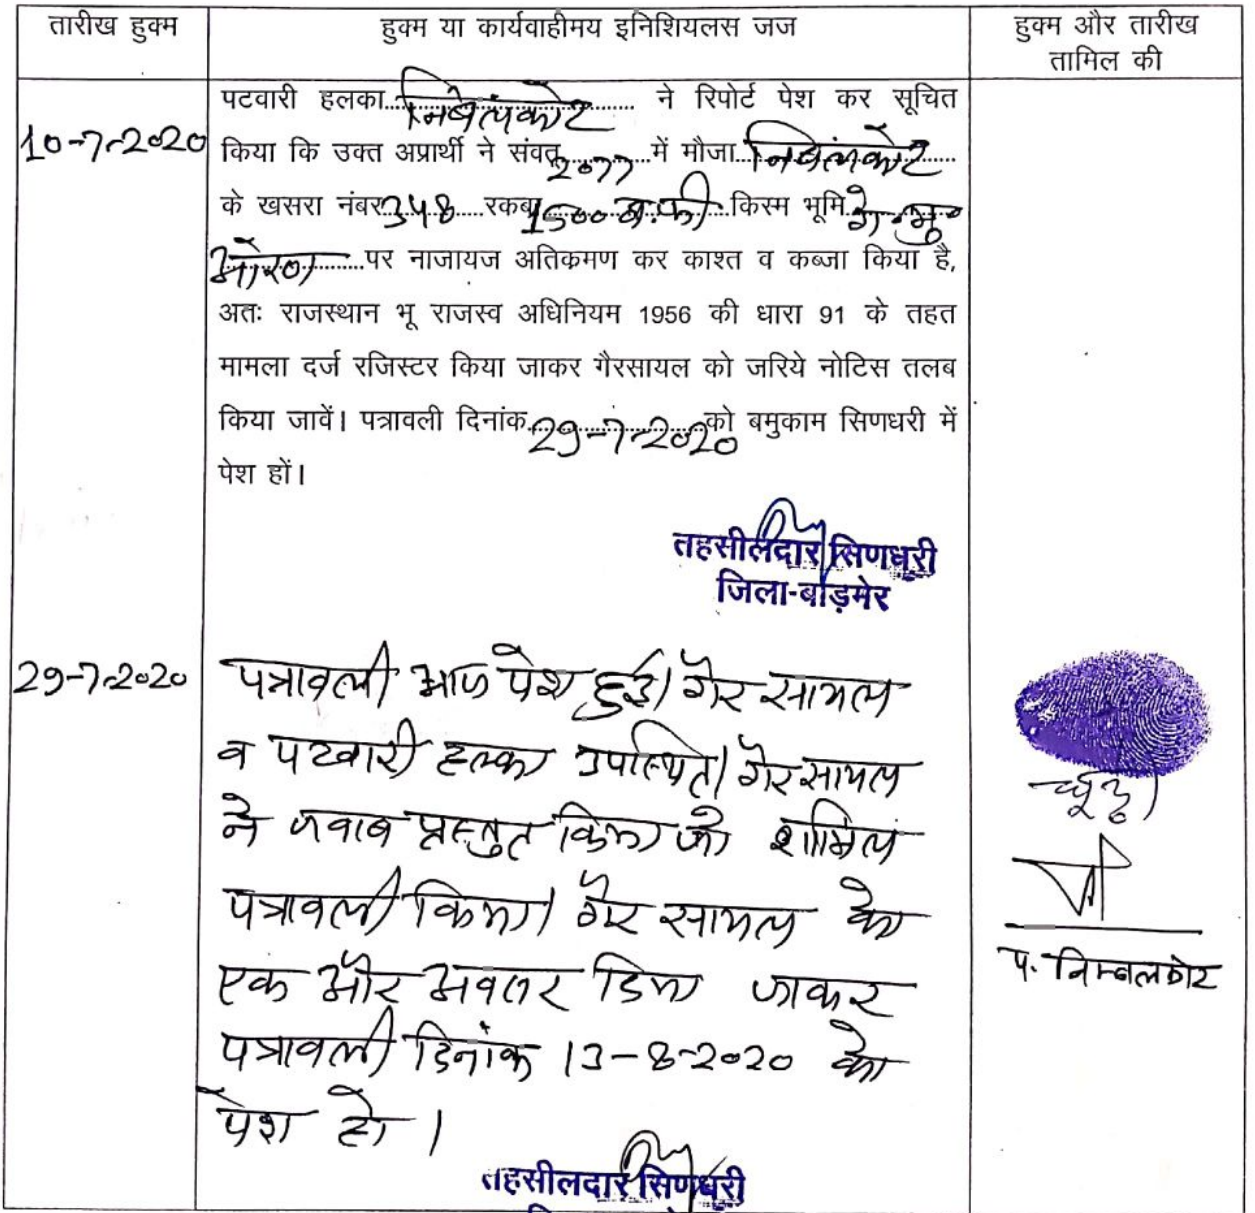 तारीख हुक्म
हुक्म या कार्यवाहीमय इनिशियलस जज
हुक्म और तारीख
तामिल की
10-7-2020
पटवारी हलका निबंलकोट ने रिपोर्ट पेश कर सूचित
किया कि उक्त अप्रार्थी ने संवत् 2077 में मौजा निबंलकोट
के खसरा नंबर 348 रकबा 1500 व.फी किस्म भूमि गै.मु.
ओरण पर नाजायज अतिक्रमण कर काश्त व कब्जा किया है,
अतः राजस्थान भू राजस्व अधिनियम 1956 की धारा 91 के तहत
मामला दर्ज रजिस्टर किया जाकर गैरसायल को जरिये नोटिस तलब
किया जावें। पत्रावली दिनांक 29-7-2020 को बमुकाम सिणधरी में
पेश हों।
तहसीलदार सिणधरी
जिला-बाड़मेर
29-7-2020
पत्रावली आज पेश हुई। गैर सायल
व पटवारी हल्का उपस्थित। गैर सायल
ने जवाब प्रस्तुत किया जो शामिल
पत्रावली किया। गैर सायल को
एक और अवसर दिया जाकर
पत्रावली दिनांक 13-8-2020 को
पेश हो।
प. निम्बलकोट
तहसीलदार सिणधरी